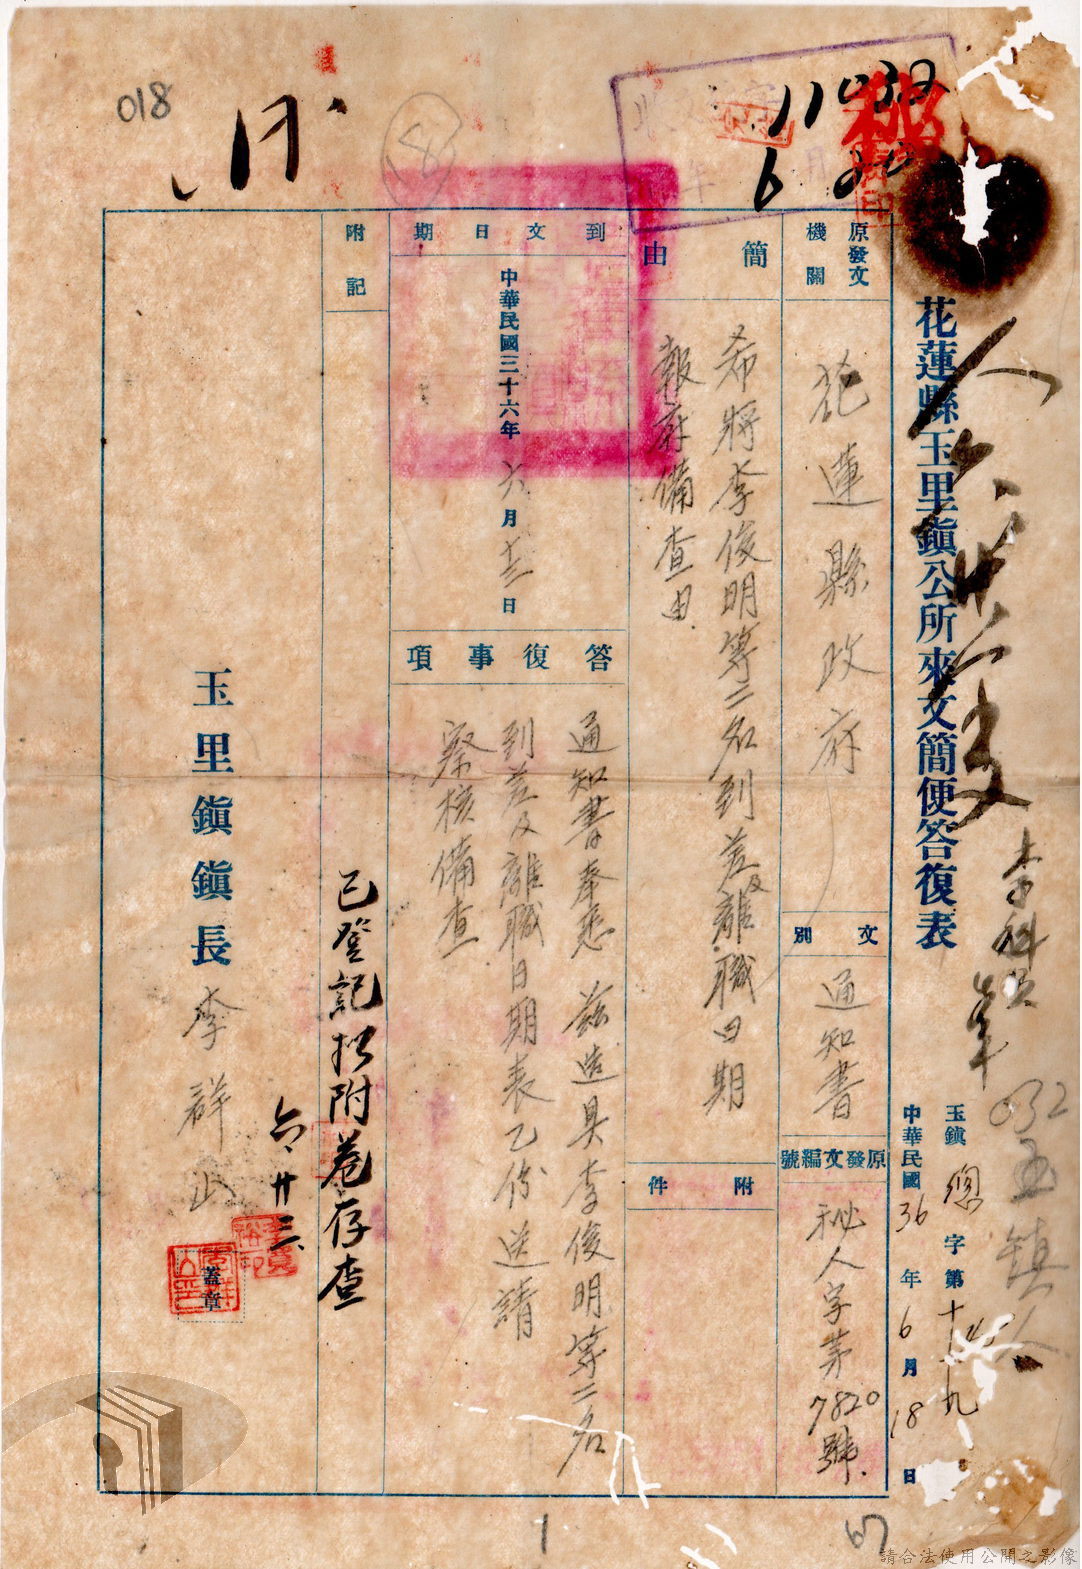 018
18
11032
6 20
花蓮縣玉里鎮公所來文簡便答復表
李科員
032 玉鎮人
玉鎮 總 字第
中華民國 36 年 6 月 18 日
原發文機關
花蓮縣政府
文別
通知書
原發文編號
秘人字第7820號
簡由
希將李俊明等二名到差及離職日期
報府備查由
附件
到文日期
中華民國三十六年 六月 十三日
答復事項
通知書奉悉 茲造具李俊明等二名
到差及離職日期表乙份送請
察核備查
附記
已登記擬附卷存查
六、廿三
玉里鎮鎮長 李群山
蓋章
1
請合法使用公開之影像